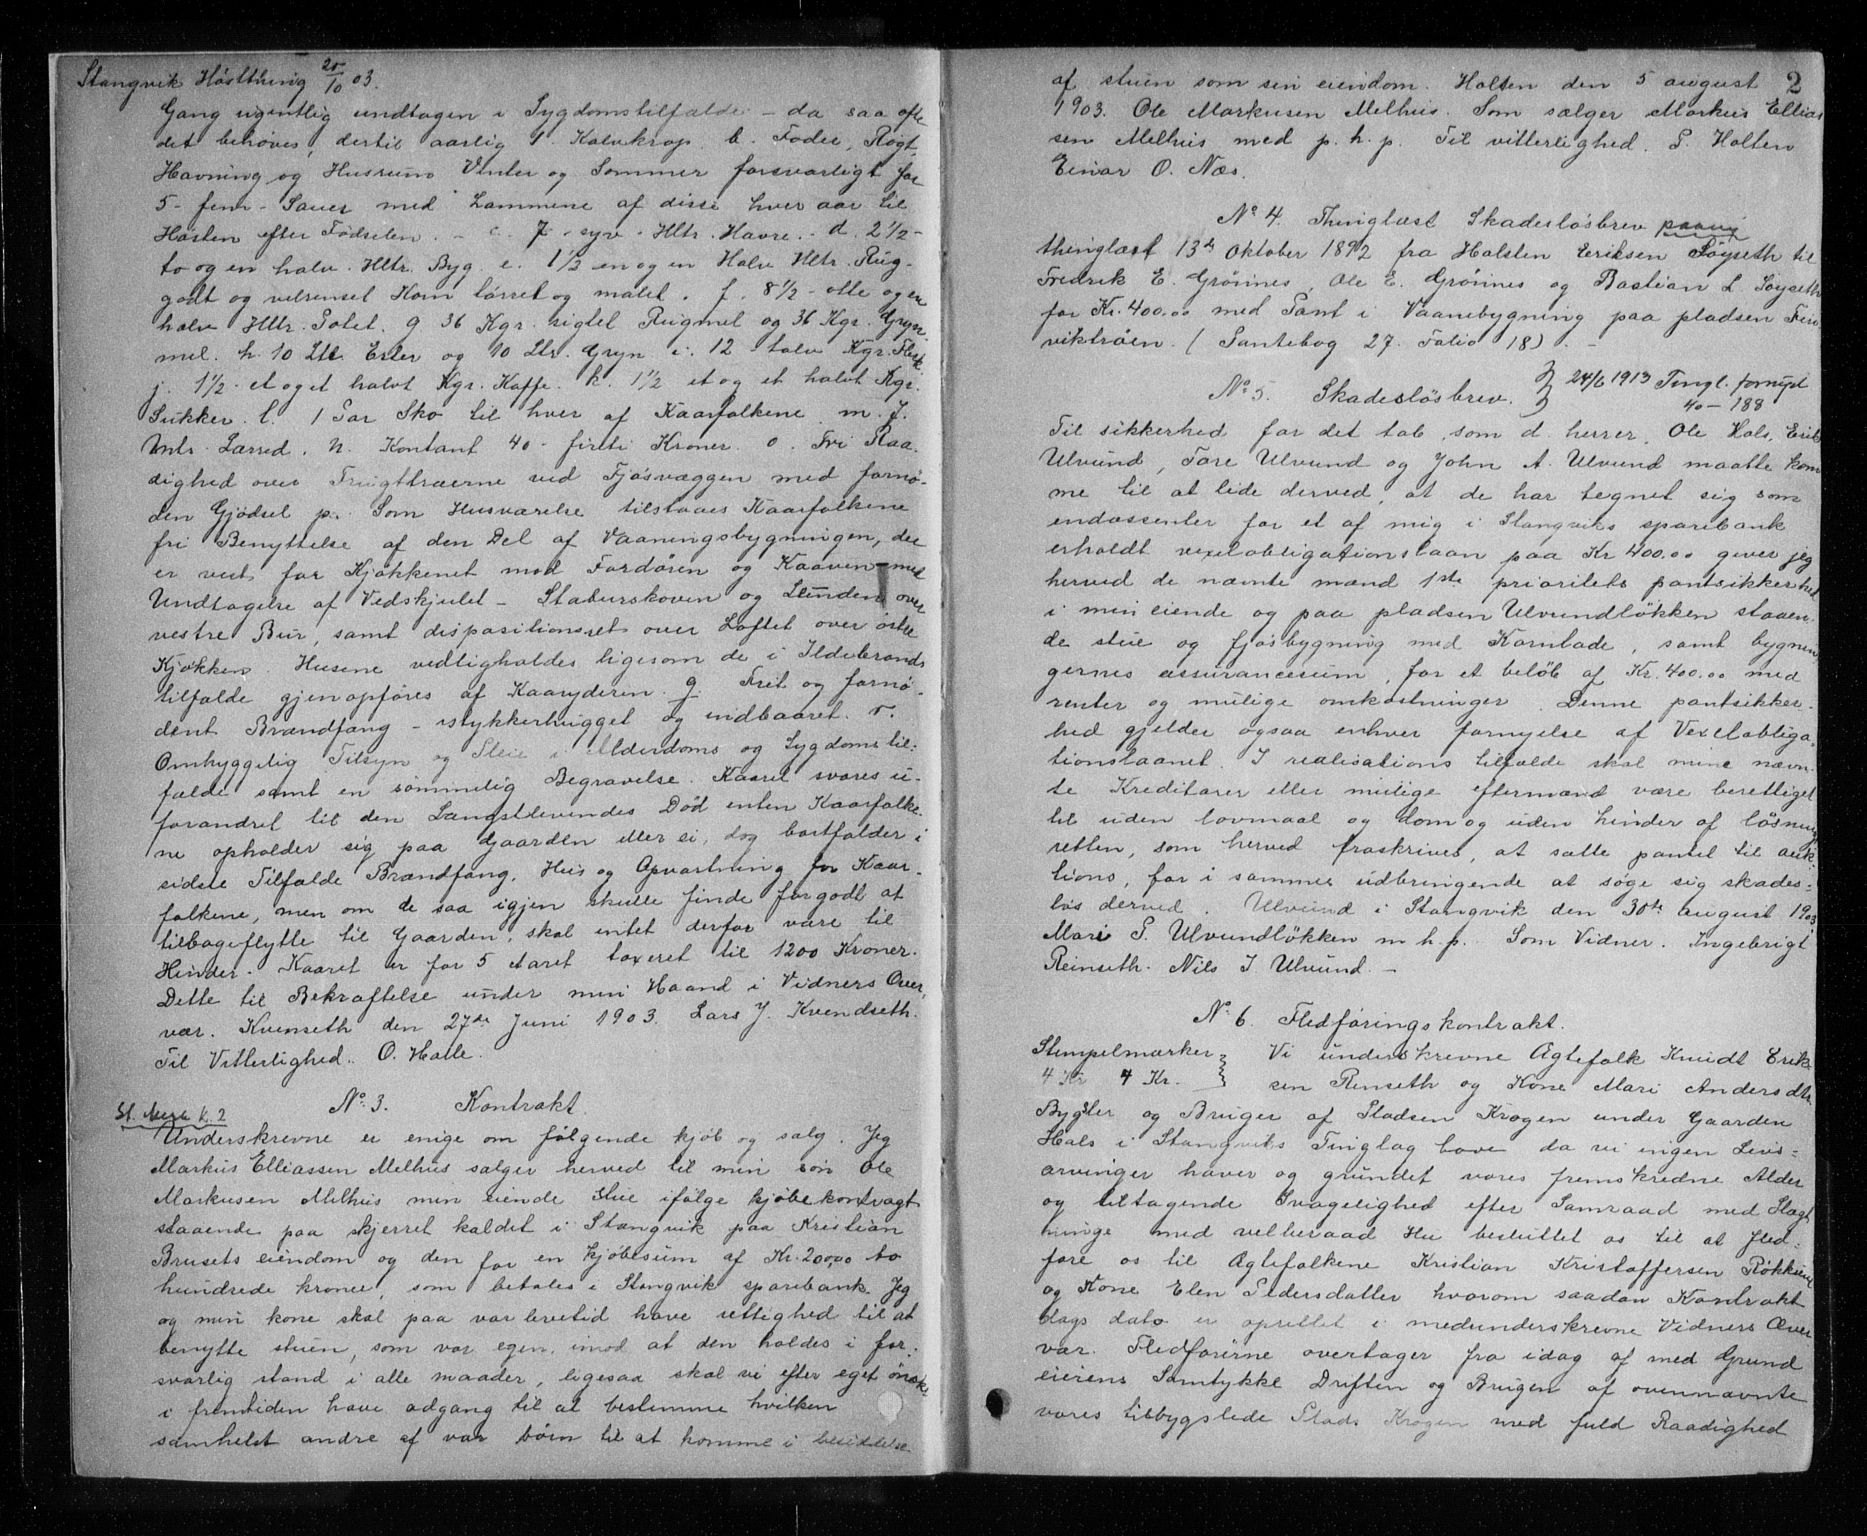 Stangvik Høstthing 20/10 03.
Gang ugentlig undtagen i Sygdomstilfælde - da saa ofte
det behøves, dertil aarlig 1 Kalvekrop. b. Foder, Røgt,
Havning og Husrum Vinter og Sommer forsvarligt for
5 - fem - Sauer med Lammene af disse hver aar til
Høsten efter Fødselen. - c. 7 - syv - Hltr. Havre. - d. 2 1/2 -
to og en halv. Hltr. Byg. e. 1 1/2 en og en Halv Hltr. Rug -
godt og velrenset Korn tørret og malet. f. 8 1/2 - otte og en
halv Hltr. Potet. g 36 Kgr. sigtet Rugmel og 36 Kgr. Gryn
mel. h. 10 Ltr. Erter og 10 Ltr. Gryn i. 12 - tolv Kgr. Flesk
j. 1 1/2 - et og et halvt Kgr. Kaffe. k. 1 1/2 et og et halvt Kgr.
Sukker. l. 1 Par Sko til hver af Kaarfolkene m. 7.
Mtr. Lærred. n. Kontant 40 - firti Kroner o. Fri Raa-
dighed over Frugttræerne ved Fjøsvæggen med fornø-
den Gjødsel p. Som Husværelse tilstaaes Kaarfolkene
fri Benyttelse af den Del af Vaaningsbygningen, der
er vest for Kjøkkenet med Fordøren og Kaaven med
Undtagelse af Vedskjulet - Staburskoven og Lunden over
vestre Bur, samt dispositionsret over Loftet over østre
Kjøkken. Husene vedligholdes ligesom de i Ildebrands
tilfælde gjenopføres af Kaaryderen. q. Frit og fornø-
dent Brændfang - istykkerhugget og indbaaret. r.
Omhyggelig Tilsyn og Pleie i Alderdoms og Sygdomstil-
fælde samt en sømmelig Begravelse. Kaaret svares u-
forandret til den Længstlevendes Død enten Kaarfolke-
ne opholder sig paa Gaarden eller ei, dog bortfalder i
sidste Tilfælde Brændfang, Hus og Opvartning for Kaar-
folkene, men om de saa igjen skulle finde for godt at
tilbageflytte til Gaarden, skal intet derfor være til
Hinder. Kaaret er for 5 Aaret taxeret til 1200 Kroner.
Dette til Bekræftelse under min Haand i Vidners Over-
vær. Kvenseth den 27de Juni 1903. Lars J. Kvendseth.
Til Vitterlighed. O. Halle.
No. 3. Kontrakt.
St. k. 2
Underskrevne er enige om følgende kjøb og salg. Jeg
Markus Elliassen Melhus sælger herved til min søn Ole
Markusen Melhus min eiende stue ifølge kjøbekontragt
staaende paa skjerret kaldet i Stangvik paa Kristian
Brusets eiendom og den for en kjøbesum af Kr. 200,00 to
hundrede kroner, som betales i Stangvik sparebank. Jeg
og min kone skal paa vor levetid have rettighed til at
benytte stuen, som vor egen, imod at den holdes i for-
svarlig stand i alle maader, ligesaa skal vi efter eget ønske
i fremtiden have adgang til at bestemme hvilken
somhelst andre af vor børn til at komme i besiddelse
2
af stuen som sin eiendom. Holten den 5 august
1903. Ole Markusen Melhus. Som sælger Markus Ellias
sen Melhus med p. h. p. Til vitterlighed. P. Holten
Einar O. Næs.
No. 4. Thinglæst Skadesløsbrev paany
thinglæst 13de Oktober 1892 fra Halsten Eriksen Søyseth til
Fredrik E. Grønnes, Ole E. Grønnes og Bastian L. Søyseth
for Kr. 400.00 med Pant i Vaanebygning paa pladsen Fin
viktrøen. (Pantebog 27. Folio 18) -
No. 5. Skadesløsbrev. 24/6 1913 Tingl. fornyet
40 - 188
Til sikkerhed for det tab, som d herrer. Ole Hals, Erik
Ulvund, Tore Ulvund og John A. Ulvund maatte kom
me til at lide derved, at de har tegnet sig som
endossenter for et af mig i Stangviks sparebank
erholdt vexelobligationslaan paa Kr 400.00 giver jeg
herved de nævnte mænd 1ste prioritets pantsikkerhed
i min eiende og paa pladsen Ulvundløkken staaen-
de stue og fjøsbygning med Kornlade, samt bygnin
gernes assurancesum, for et beløb af Kr. 400.00 med
renter og mulige omkostninger. Denne pantsikker-
hed gjelder ogsaa enhver fornyelse af Vexelobliga-
tionslaanet. I realisations tilfælde skal mine nævn-
te Kreditorer eller mulige eftermænd være berettiget
til uden lovmaal og dom og uden hinder af løsnings
retten, som herved fraskrives, at sætte pantet til auk-
tions, for i sammes udbringende at søge sig skades-
løs derved. Ulvund i Stangvik den 30te august 1903
Mari P. Ulvundløkken m. h. p. Som Vidner. Ingebrigt
Reinseth. Nils I Ulvund. -
No. 6. Fledføringskontrakt.
Stempelmærker Vi underskrevne Ægtefolk Knudt Erik-
4 Kr 4 Kr. sen Renseth og Kone Mari Andersdtr.
Bygsler og Bruger af Pladsen Krogen under Gaarden
Hals i Stangviks Tinglag have da vi ingen Livs-
arvinger haver og grundet vores fremskredne Alder
og tiltagende Svagelighed efter Samraad med Slægt
ninge med velberaad Hu besluttet os til at fled-
føre os til Ægtefolkene Kristian Kristoffersen Røkkum
og Kone Elen Pedersdatter hvorom saadan Kontrakt
dags dato er oprettet i medunderskrevne Vidners Over
vær. Fledførerne overtager fra idag af med Grund
eierens Samtykke Driften og Brugen af ovennævnte
vores tilbygslede Plads Krogen med fuld Raadighed